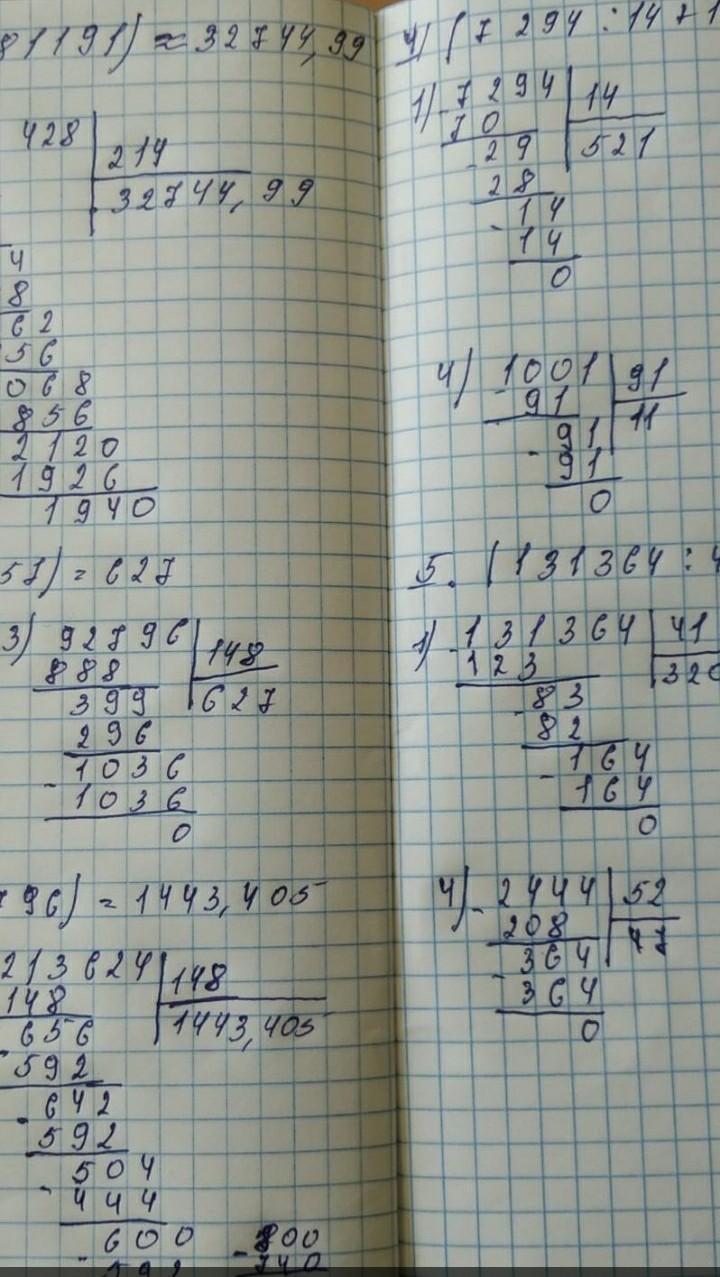 81191) ≈ 32744,99
428 | 214
32744, 99
4
8
62
56
068
856
2120
1926
1940
57) = 627
3) 92796 | 148
888 | 627
399
296
1036
- 1036
0
796) = 1443,405
213624 | 148
148 | 1443,405
656
- 592
642
- 592
504
- 444
600 - 800
- 592 740
4) (7 294 : 14 + 1
1) - 7294 | 14
70 | 521
- 29
28
- 14
14
0
4) - 1001 | 91
91 | 11
- 91
91
0
5. (131364 : 4
1) - 131364 | 41
123 | 320
- 83
82
- 164
164
0
4) - 2444 | 52
208 | 47
- 364
364
0